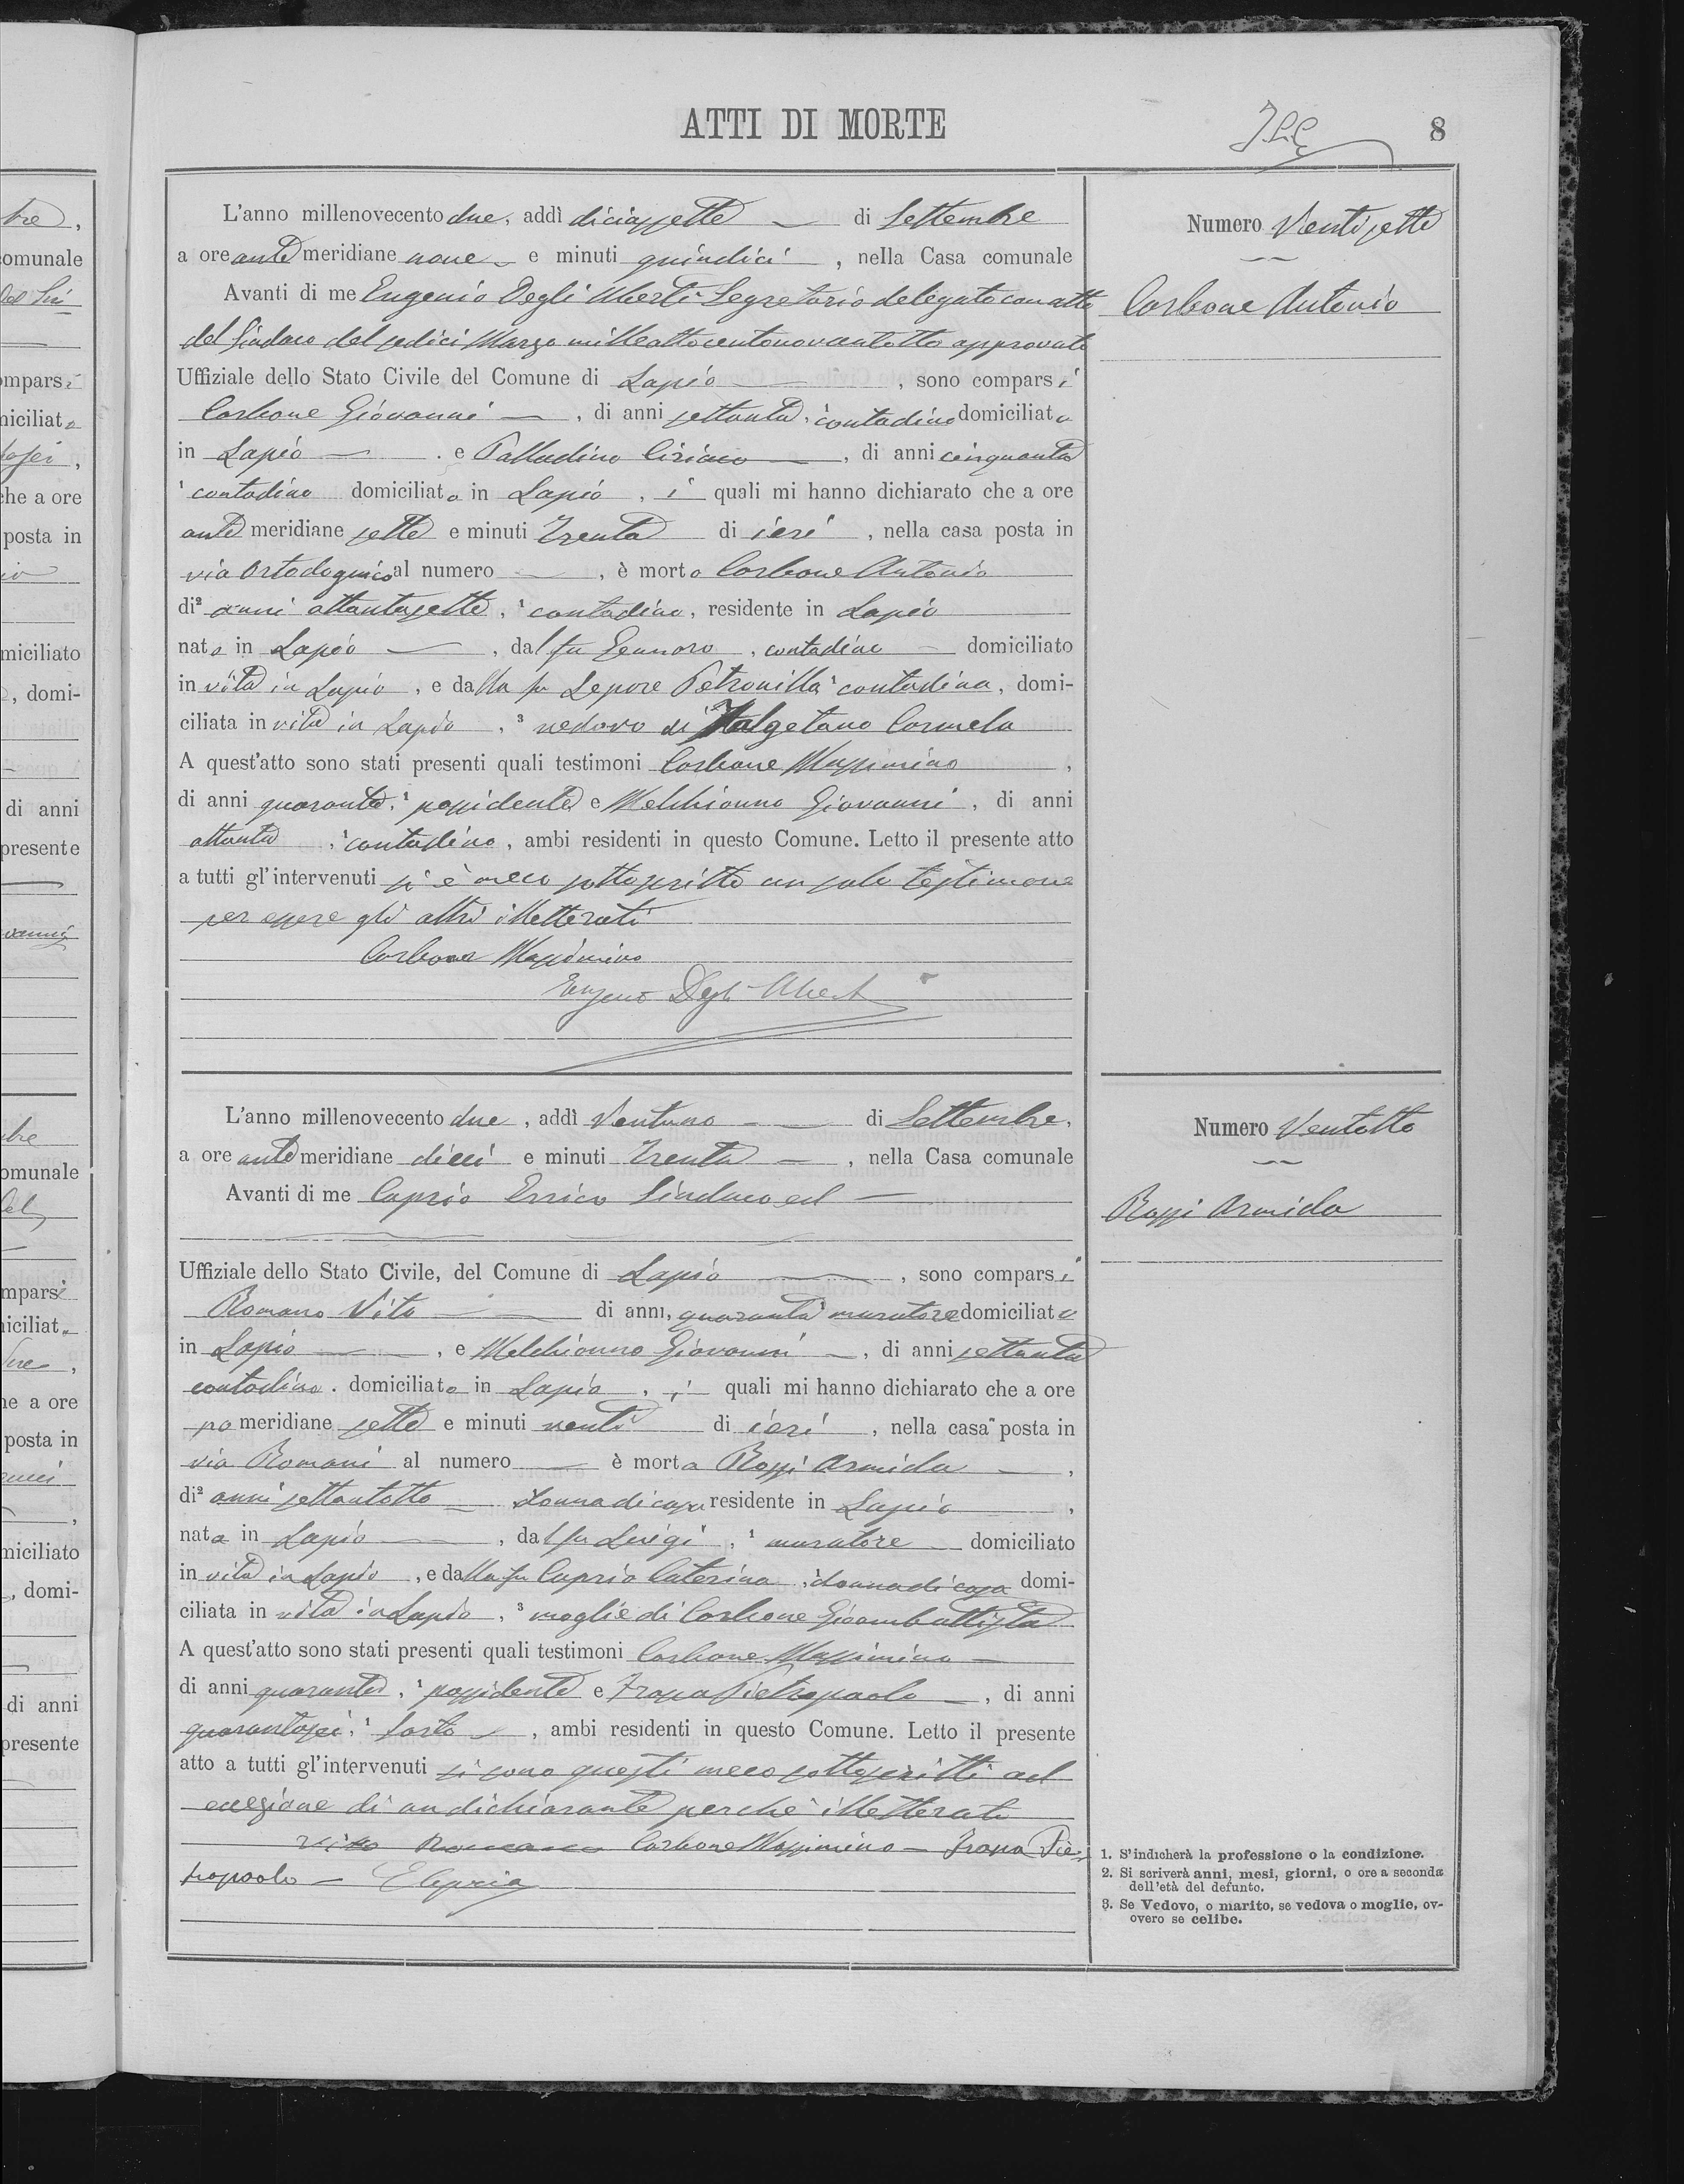 ATTI DI MORTE
8
L'anno millenovecento due, addì diciassette di Settembre
a ore anti meridiane nove e minuti quindici, nella Casa comunale
Avanti di me Eugenio Degli Uberti Segretario delegato con atto
del Sindaco del sedici Marzo milleottocentonovantotto approvato
Uffiziale dello Stato Civile del Comune di Lapio, sono comparsi
Carbone Giovanni, di anni settanta, ¹ contadino domiciliato
in Lapio. e Palladino Ciriaco, di anni cinquanta
¹ contadino domiciliato in Lapio, i quali mi hanno dichiarato che a ore
anti meridiane sette e minuti Trenta di ieri, nella casa posta in
via al numero , è morto Carbone Antonio
di² anni ottantasette, ¹ contadino, residente in Lapio
nato in Lapio, dal fu Gennaro, contadino domiciliato
in vita in Lapio, e dalla fu Lepore Petronilla ¹ contadina, domi-
ciliata in vita in Lapio, ³ vedovo di Carmela
A quest'atto sono stati presenti quali testimoni Carbone Massimino,
di anni quaranta, ¹ possidente e Melchionno Giovanni, di anni
ottanta, ¹ contadino, ambi residenti in questo Comune. Letto il presente atto
a tutti gl'intervenuti si è meco sottoscritto un solo testimone
per essere gli altri illetterati
Carbone Massimino
Eugenio Degli Uberti
Numero Ventisette
Carbone Antonio
L'anno millenovecento due, addì Ventuno di Settembre,
a ore anti meridiane dieci e minuti Trenta, nella Casa comunale
Avanti di me Caprio Errico Sindaco ed
Uffiziale dello Stato Civile, del Comune di Lapio, sono comparsi
Romano Vito di anni, quaranta ¹ muratore domiciliato
in Lapio, e Melchionno Giovanni, di anni settanta
contadino. domiciliato in Lapio, i quali mi hanno dichiarato che a ore
po meridiane sette e minuti venti di ieri, nella casa posta in
via Romani al numero è morta Rossi Armida,
di² anni settantotto donna di casa residente in Lapio,
nata in Lapio, dal fu Luigi, ¹ muratore domiciliato
in vita in Lapio, e dalla fu Caprio Caterina, ¹ donna di casa domi-
ciliata in vita in Lapio, ³ moglie di Carbone Giambattista
A quest'atto sono stati presenti quali testimoni Carbone Massimino
di anni quaranta, ¹ possidente e Pietropaolo, di anni
quarantasei, ¹ sarto, ambi residenti in questo Comune. Letto il presente
atto a tutti gl'intervenuti si sono questi meco sottoscritti ad
eccezione di un dichiarante perchè illetterato
Vito Romano Carbone Massimino - Pie-
tropaolo - ECaprio
Numero Ventotto
Rossi Armida
1. S'indicherà la professione o la condizione.
2. Si scriverà anni, mesi, giorni, o ore a seconda
dell'età del defunto.
3. Se Vedovo, o marito, se vedova o moglie, ov-
overo se celibe.